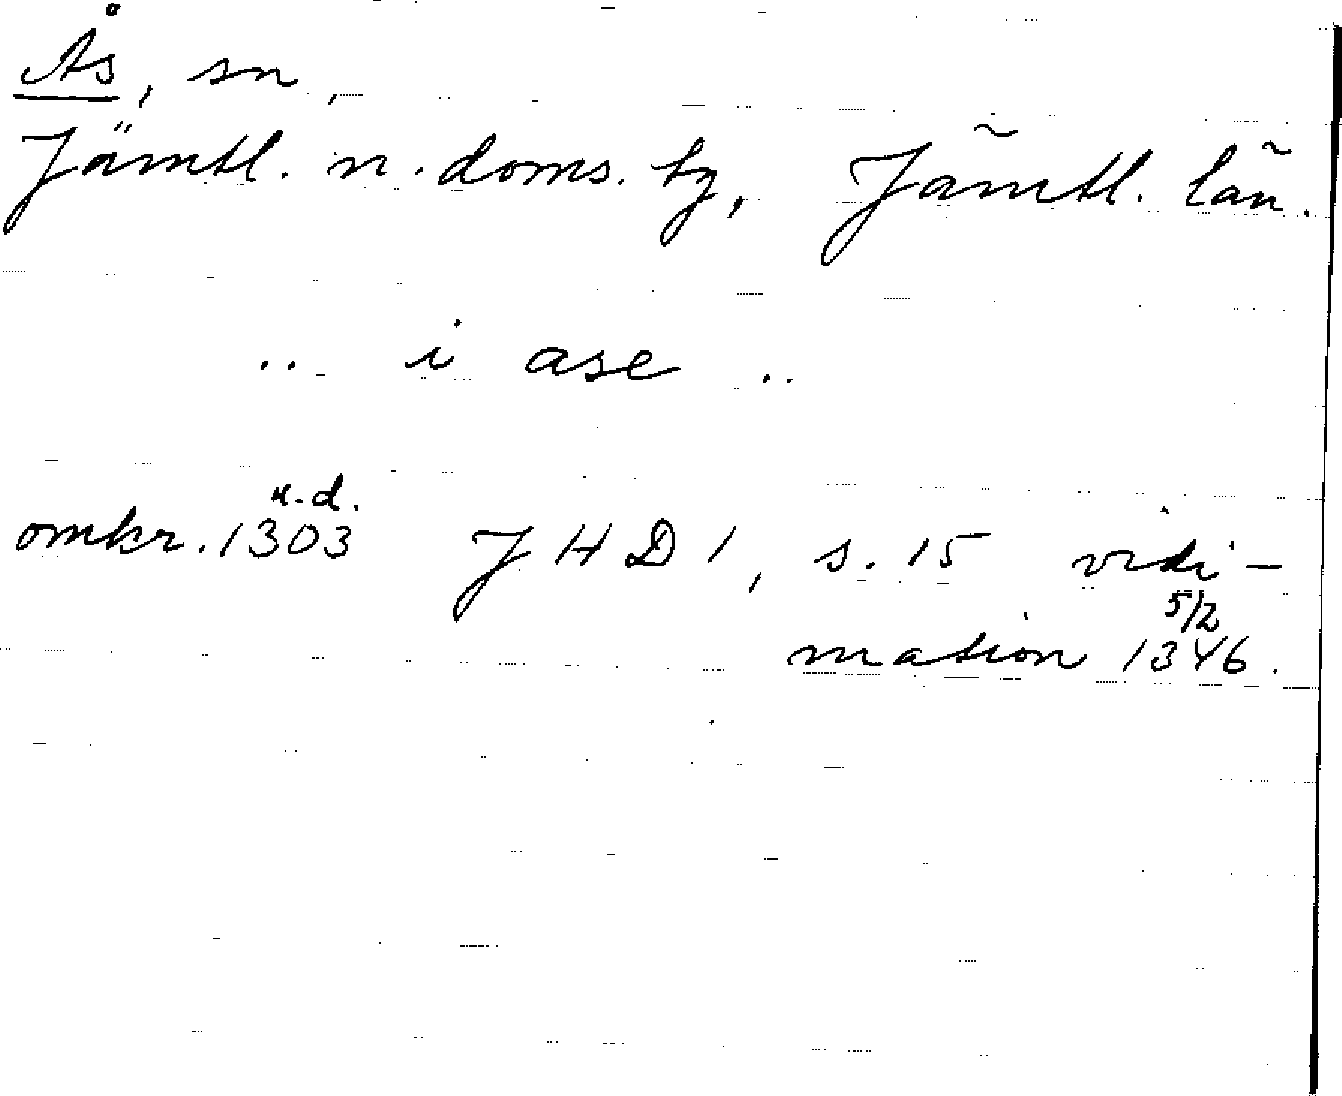 Ås, sn,
Jämtl. n. doms. tg, Jämtl. län.
.. i ase ..
u.d.
omkr. 1303 JHD 1, s. 15 vidi-
5/2
mation 1346.